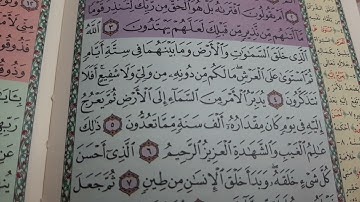 أَمْ يَقُولُونَ ٱفْتَرَىٰهُ بَلْ هُوَ ٱلْحَقُّ مِن رَّبِّكَ لِتُنذِرَ قَوْمًا
مَّآ أَتَىٰهُم مِّن نَّذِيرٍ مِّن قَبْلِكَ لَعَلَّهُمْ يَهْتَدُونَ ٣ ٱللَّهُ
ٱلَّذِى خَلَقَ ٱلسَّمَٰوَٰتِ وَٱلْأَرْضَ وَمَا بَيْنَهُمَا فِى سِتَّةِ أَيَّامٍ
ثُمَّ ٱسْتَوَىٰ عَلَى ٱلْعَرْشِ مَا لَكُم مِّن دُونِهِۦ مِن وَلِىٍّ وَلَا شَفِيعٍ أَفَلَا
تَتَذَكَّرُونَ ٤ يُدَبِّرُ ٱلْأَمْرَ مِنَ ٱلسَّمَآءِ إِلَى ٱلْأَرْضِ ثُمَّ يَعْرُجُ
إِلَيْهِ فِى يَوْمٍ كَانَ مِقْدَارُهُۥٓ أَلْفَ سَنَةٍ مِّمَّا تَعُدُّونَ ٥ ذَٰلِكَ
عَٰلِمُ ٱلْغَيْبِ وَٱلشَّهَٰدَةِ ٱلْعَزِيزُ ٱلرَّحِيمُ ٦ ٱلَّذِىٓ أَحْسَنَ
كُلَّ شَىْءٍ خَلَقَهُۥ وَبَدَأَ خَلْقَ ٱلْإِنسَٰنِ مِن طِينٍ ٧ ثُمَّ جَعَلَ